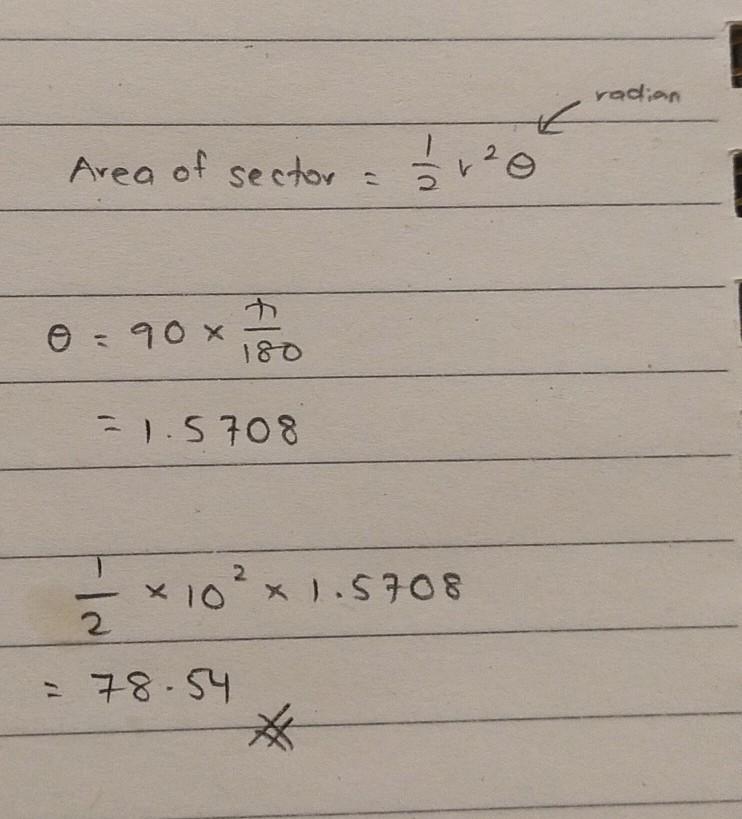 radian
Area of sector = 1/2 r²θ
θ = 90 × π/180
= 1.5708
1/2 × 10² × 1.5708
= 78.54